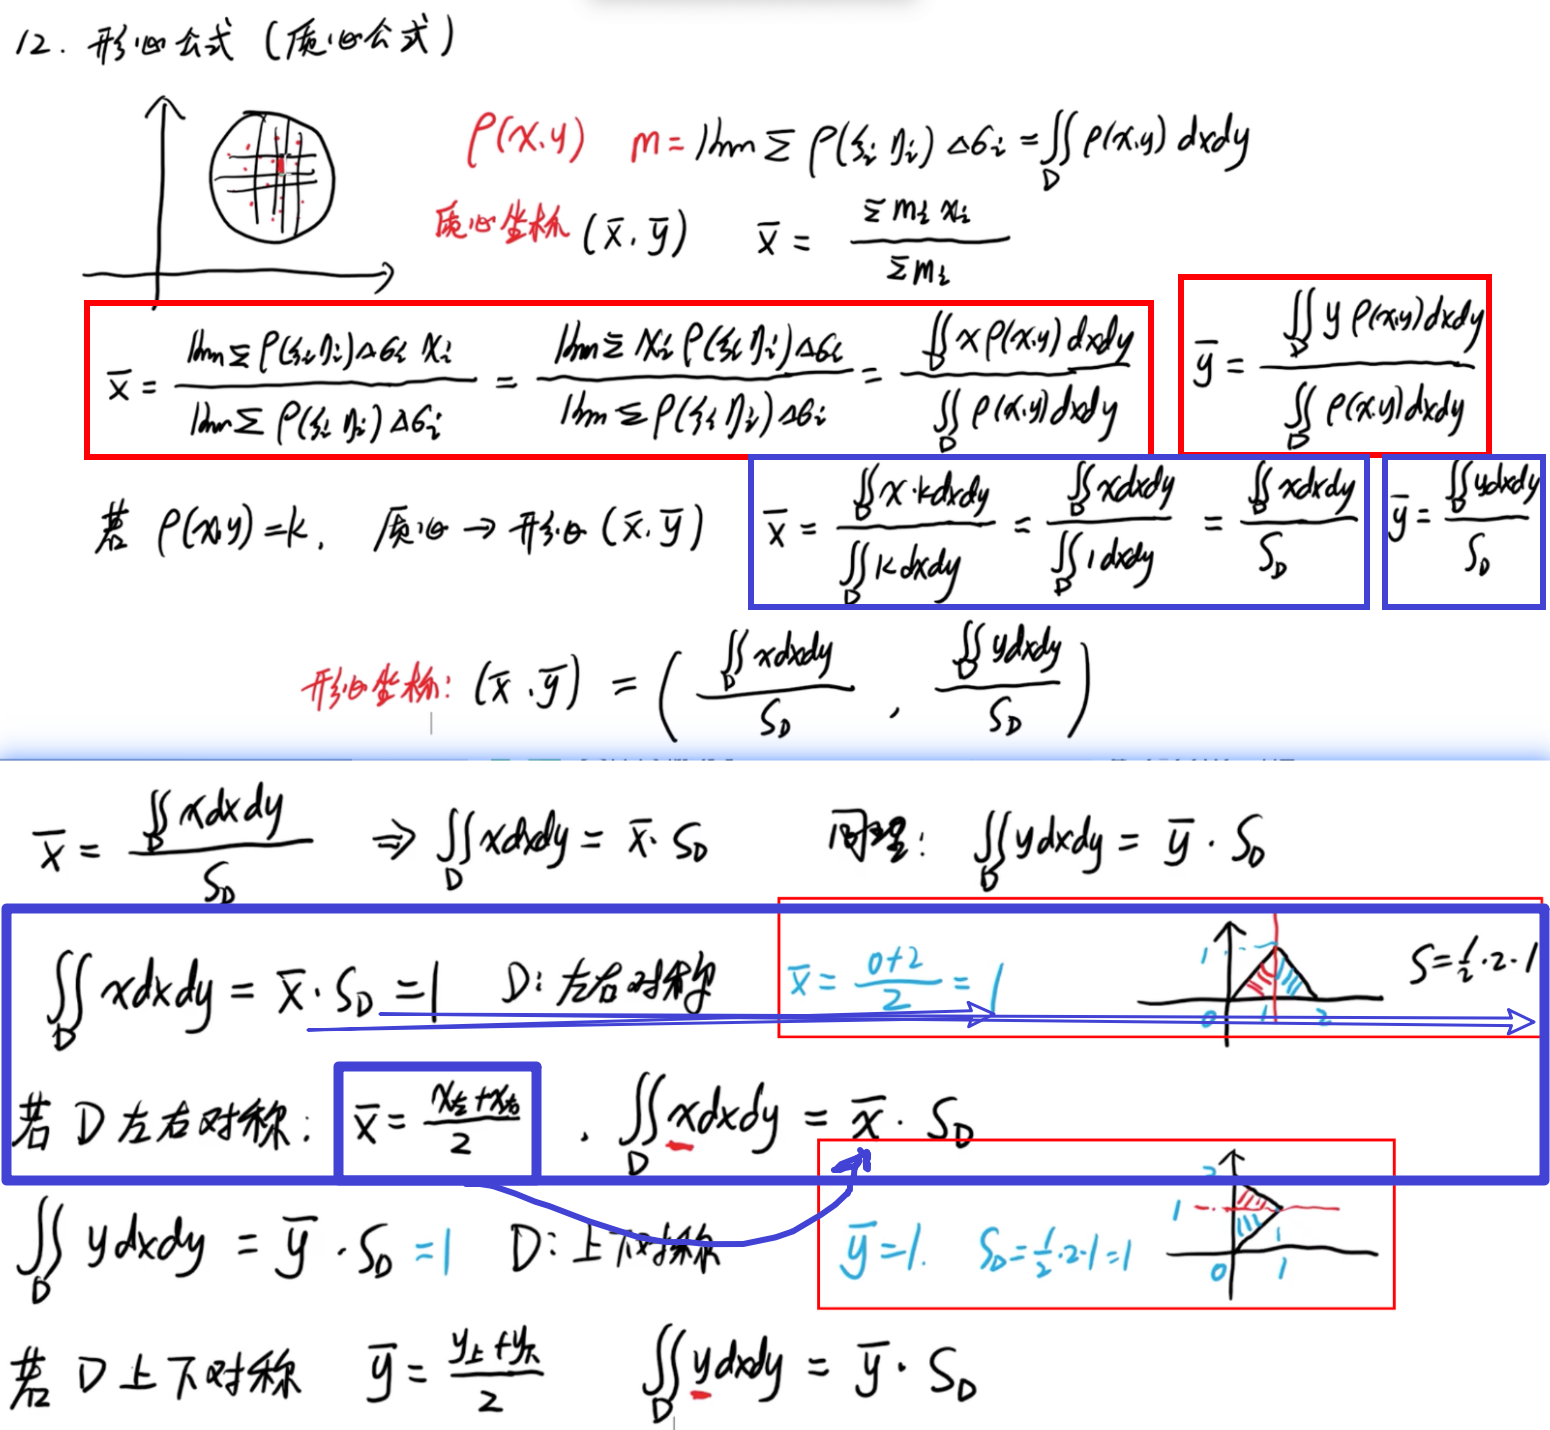 12. 形心公式 (质心公式)
ρ(x,y) m = lim Σ ρ(ξi ηi) Δσi = ∬_D ρ(x,y) dxdy
质心坐标 (x̄, ȳ) x̄ = Σ mi xi / Σ mi
x̄ = lim Σ ρ(ξi ηi) Δσi xi / lim Σ ρ(ξi ηi) Δσi = lim Σ xi ρ(ξi ηi) Δσi / lim Σ ρ(ξi ηi) Δσi = ∬_D x ρ(x,y) dxdy / ∬_D ρ(x,y) dxdy ȳ = ∬_D y ρ(x,y) dxdy / ∬_D ρ(x,y) dxdy
若 ρ(x,y) = k, 质心 → 形心 (x̄, ȳ) x̄ = ∬_D x·k dxdy / ∬_D k dxdy = ∬_D x dxdy / ∬_D 1 dxdy = ∬_D x dxdy / S_D ȳ = ∬_D y dxdy / S_D
形心坐标: (x̄, ȳ) = ( ∬_D x dxdy / S_D , ∬_D y dxdy / S_D )
x̄ = ∬_D x dxdy / S_D ⇒ ∬_D x dxdy = x̄ · S_D 同理: ∬_D y dxdy = ȳ · S_D
∬_D x dxdy = x̄ · S_D = 1 D: 左右对称 x̄ = (0+2)/2 = 1 1 0 1 2 S = 1/2 · 2 · 1
若 D 左右对称: x̄ = (x左 + x右)/2 , ∬_D x dxdy = x̄ · S_D
∬_D y dxdy = ȳ · S_D = 1 D: 上下对称 ȳ = 1. S_D = 1/2 · 2 · 1 = 1 2 1 1 0 1
若 D 上下对称 ȳ = (y上 + y下)/2 ∬_D y dxdy = ȳ · S_D